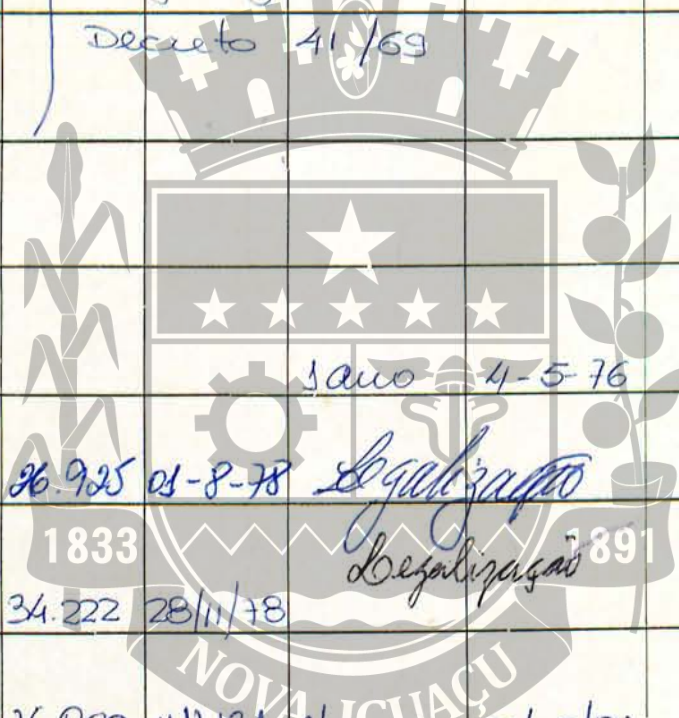 Decreto 41/69
1 ano 4-5-76
26.925 01-8-78 Legalização
1833 1891
Legalização
34.222 28/11/78
NOVA IGUAÇU